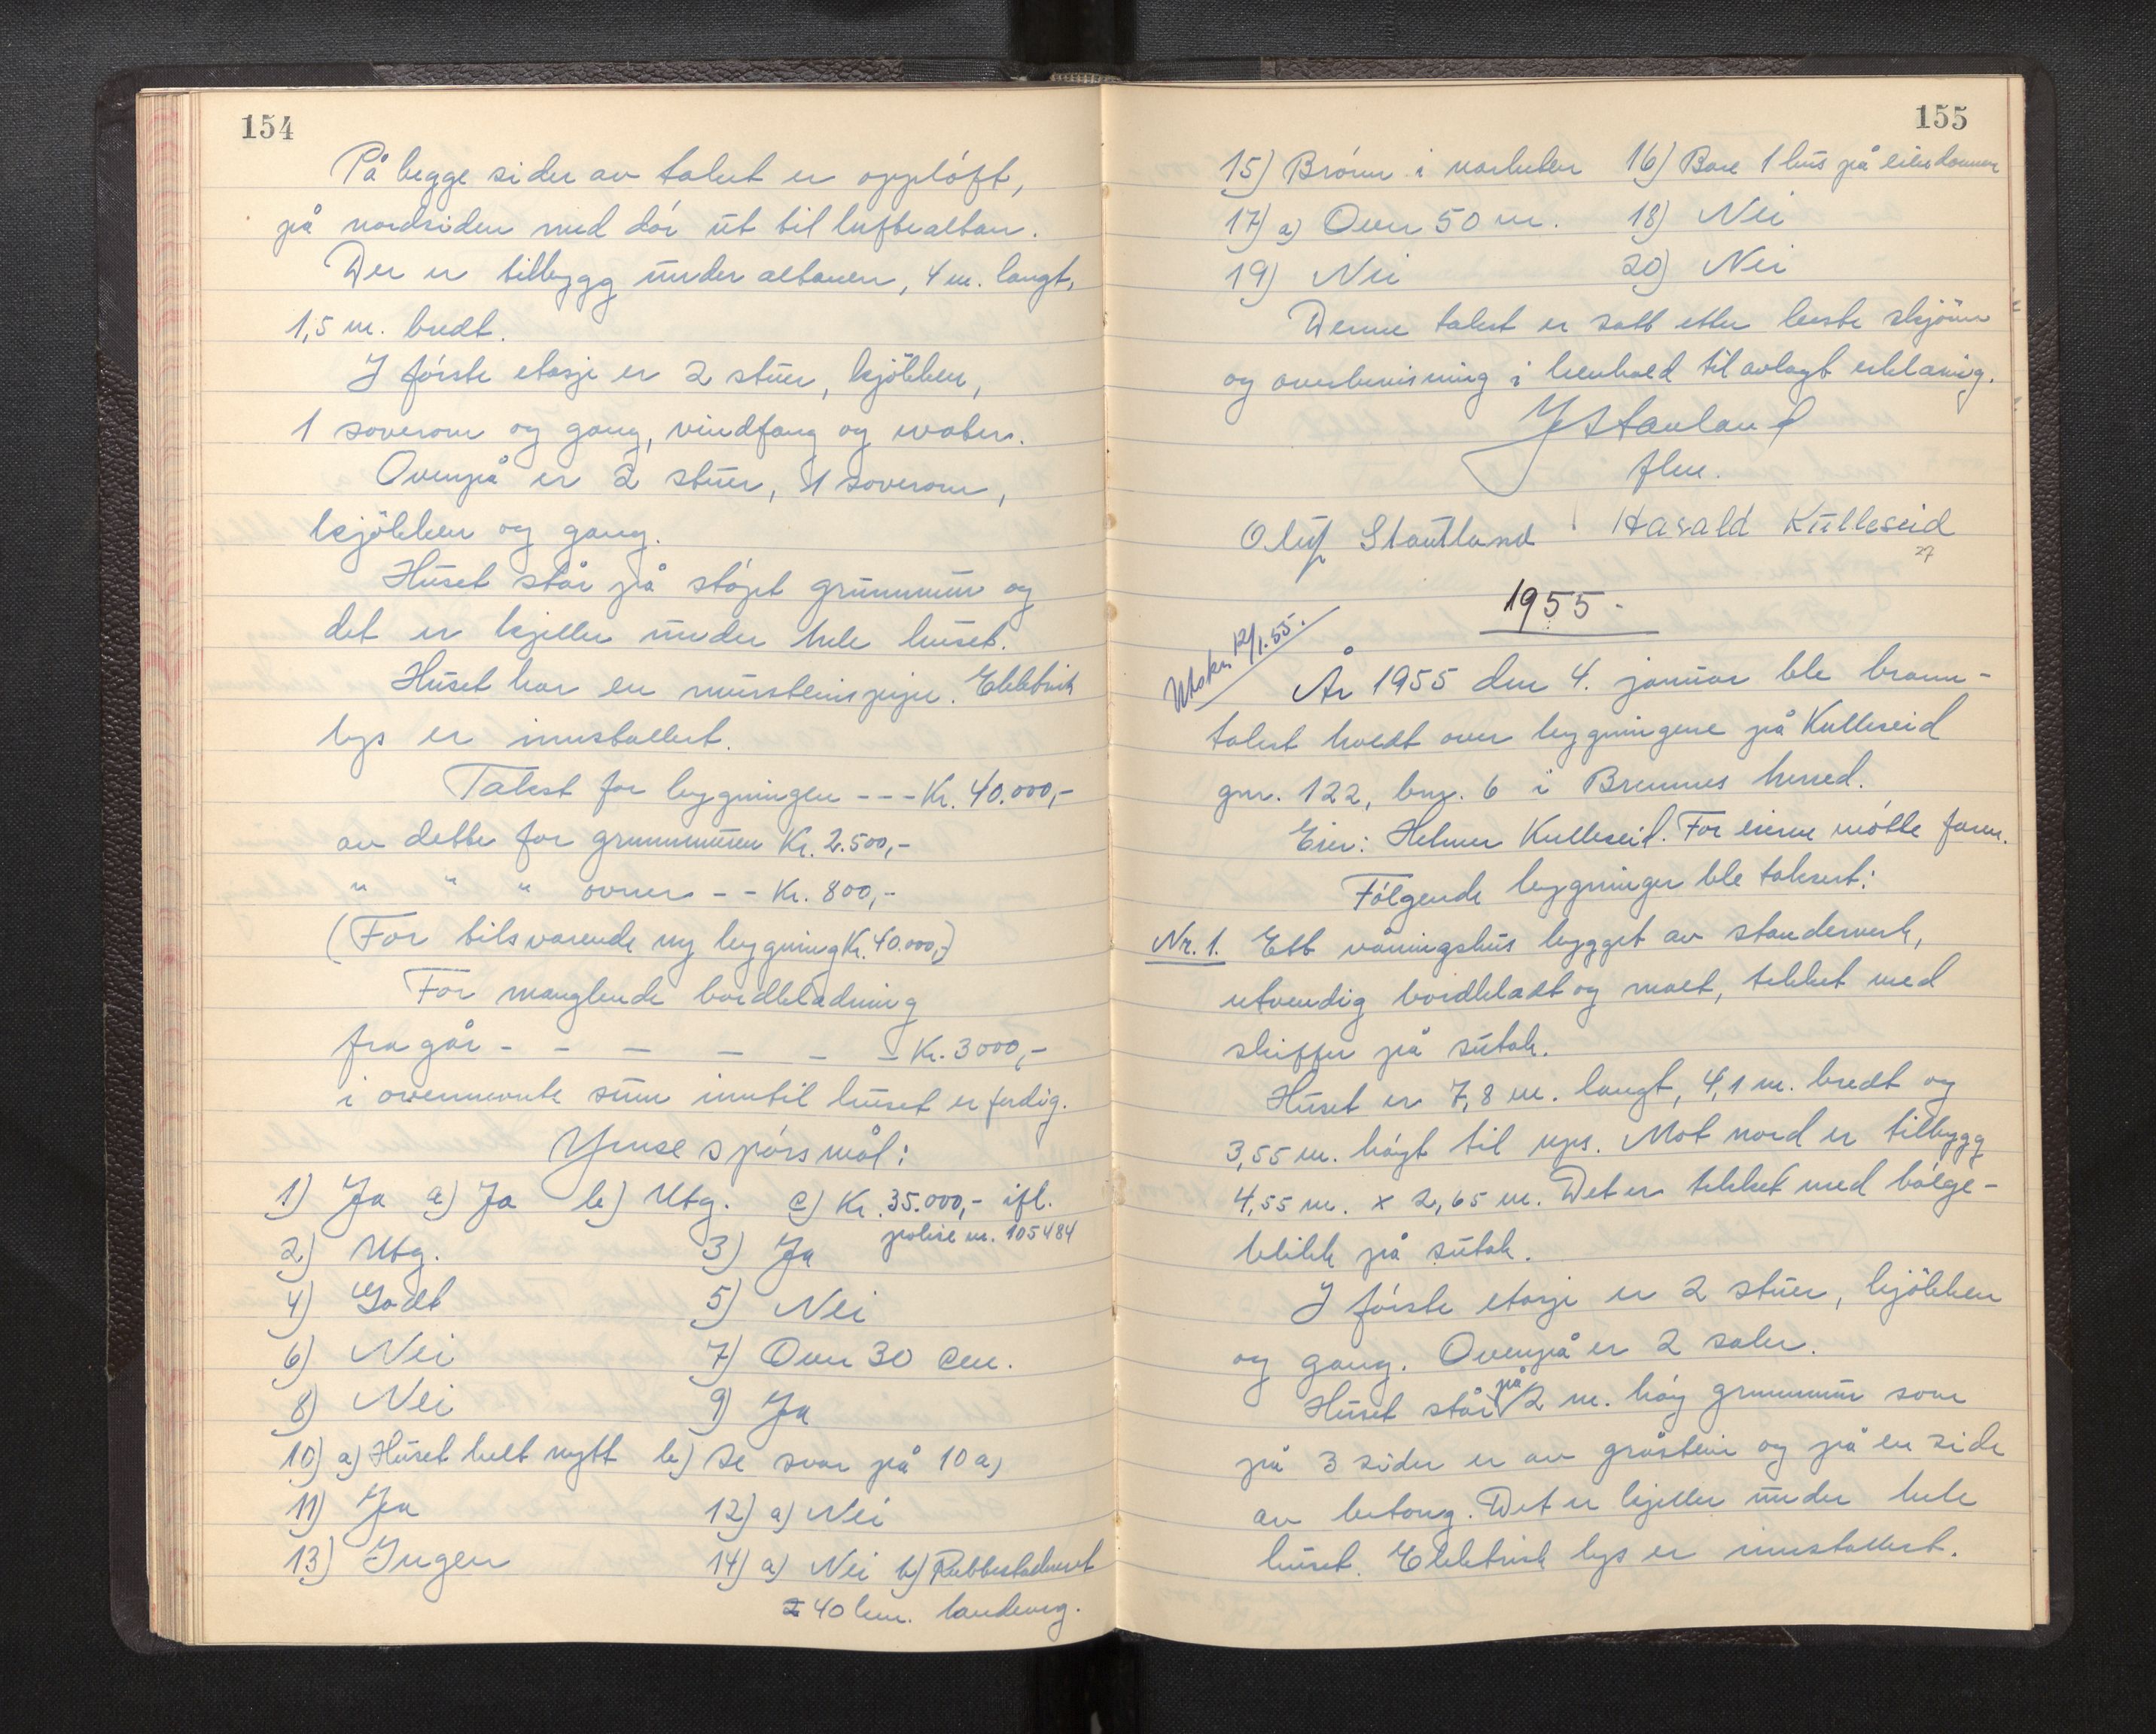 154
På begge sider av taket er oppløft,
på nordsiden med dør ut til luftealtan.
Der er tilbygg under altanen, 4 m. langt,
1,5 m. bredt.
I første etasje er 2 stuer, kjøkken,
1 soverom og gang, vindfang og
Ovenpå er 2 stuer, 1 soverom,
kjøkken og gang.
Huset står på støpt grunnmur og
det er kjeller under hele huset.
Huset har en mursteinspipe. Elektrisk
lys er innstallert.
Takst for bygningen --- Kr. 40.000,-
av dette for grunnmuren Kr. 2.500,-
" " " ovner -- Kr. 800,-
(For tilsvarende ny bygning Kr. 40.000,-)
For manglende bordkledning
fragår - - - - - - Kr. 3000,-
i ovennevnte sum inntil huset er ferdig.
Ymse spørsmål:
1) Ja a) Ja b) Utg. c) Kr. 35.000,- ifl.
polise nr. 105484
2) Utg. 3) Ja
4) Godt 5) Nei
6) Nei 7) Over 30 cm.
8) Nei 9) Ja
10) a) Huset helt nytt b) Se svar på 10 a)
11) Ja 12) a) Nei
13) Ingen 14) a) Nei b) Rubbestadneset
40 km. landeveg.
155
15) Brønn i nærheten 16) Bare 1 hus på eiendommen
17) a) Over 50 m. 18) Nei
19) Nei 20) Nei
Denne takst er satt etter beste skjønn
og overbevisning i henhold til avlagt erklæring.
J Stautland
flm.
Oluf Stautland Harald Kulleseid
27
1955-
Utskr. 12/1.55.
År 1955 den 4. januar ble brann-
takst holdt over bygningene på Kulleseid
gnr. 122, bnr. 6 i Bremnes herred.
Eier: Helmer Kulleseid. For eieren møtte faren.
Følgende bygninger ble taksert:
Nr. 1. Ett våningshus bygget av standerverk,
utvendig bordkledt og malt, tekket med
skiffer på sutak.
Huset er 7,8 m. langt, 4,1 m. bredt og
3,55 m. høyt til ups. Mot nord er tilbygg
4,55 m. x 2,65 m. Det er tekket med bølge-
blikk på sutak.
I første etasje er 2 stuer, kjøkken
og gang. Ovenpå er 2 saler.
Huset står på 2 m. høy grunnmur som
på 3 sider er av gråstein og på en side
av betong. Det er kjeller under hele
huset. Elektrisk lys er innstallert.